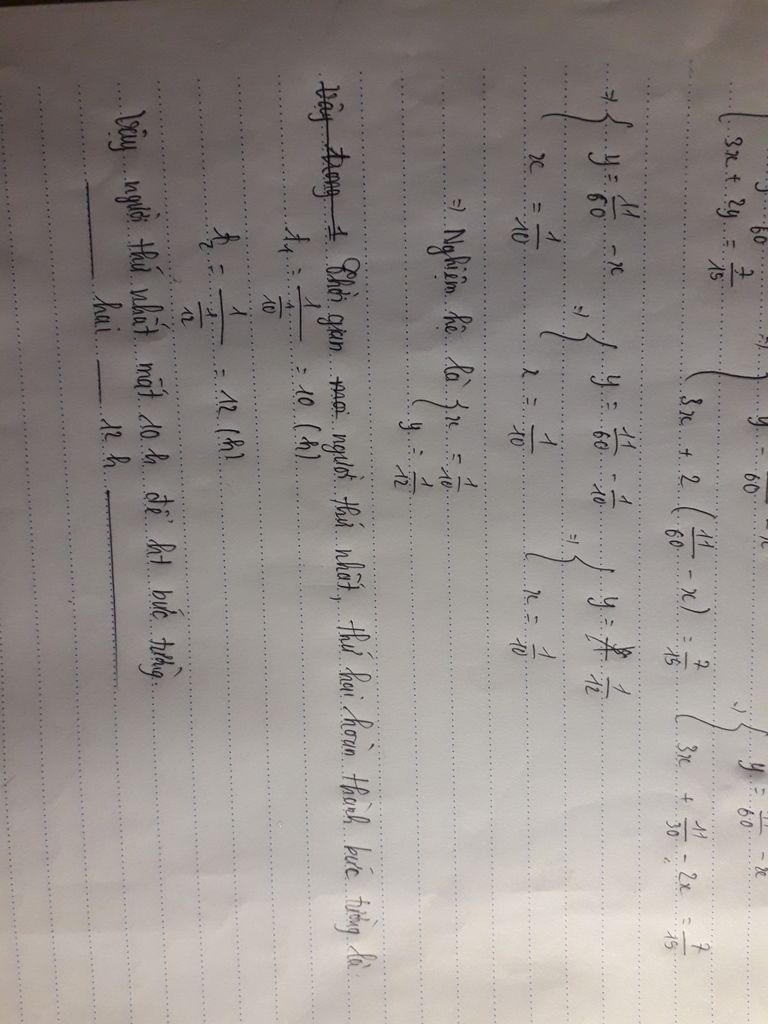 { y 60 => { y = 60 - x => { y = 11/60 - x
{ 3x + 2y = 7/15 { 3x + 2 (11/60 - x) = 7/15 { 3x + 11/30 - 2x = 7/15
=> { y = 11/60 - x => { y = 11/60 - 1/10 => { y = 1/12
{ x = 1/10 { x = 1/10 { x = 1/10
=> Nghiệm hệ là { x = 1/10
y = 1/12
Vậy trong 1 Thời gian người thứ nhất, thứ hai hoàn thành bức tường là
t1 = 1/(1/10) = 10 (h)
t2 = 1/(1/12) = 12 (h)
Vậy người thứ nhất mất 10 h để ht bức tường.
hai 12 h